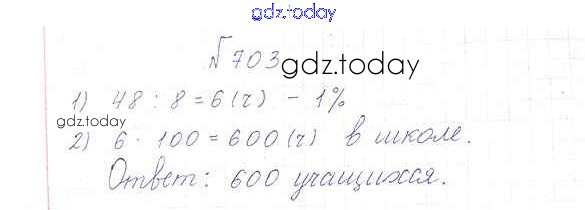 gdz.today
№703
gdz.today
1) 48 : 8 = 6 (ч) - 1%
gdz.today
2) 6 · 100 = 600 (ч) в школе.
Ответ: 600 учащихся.